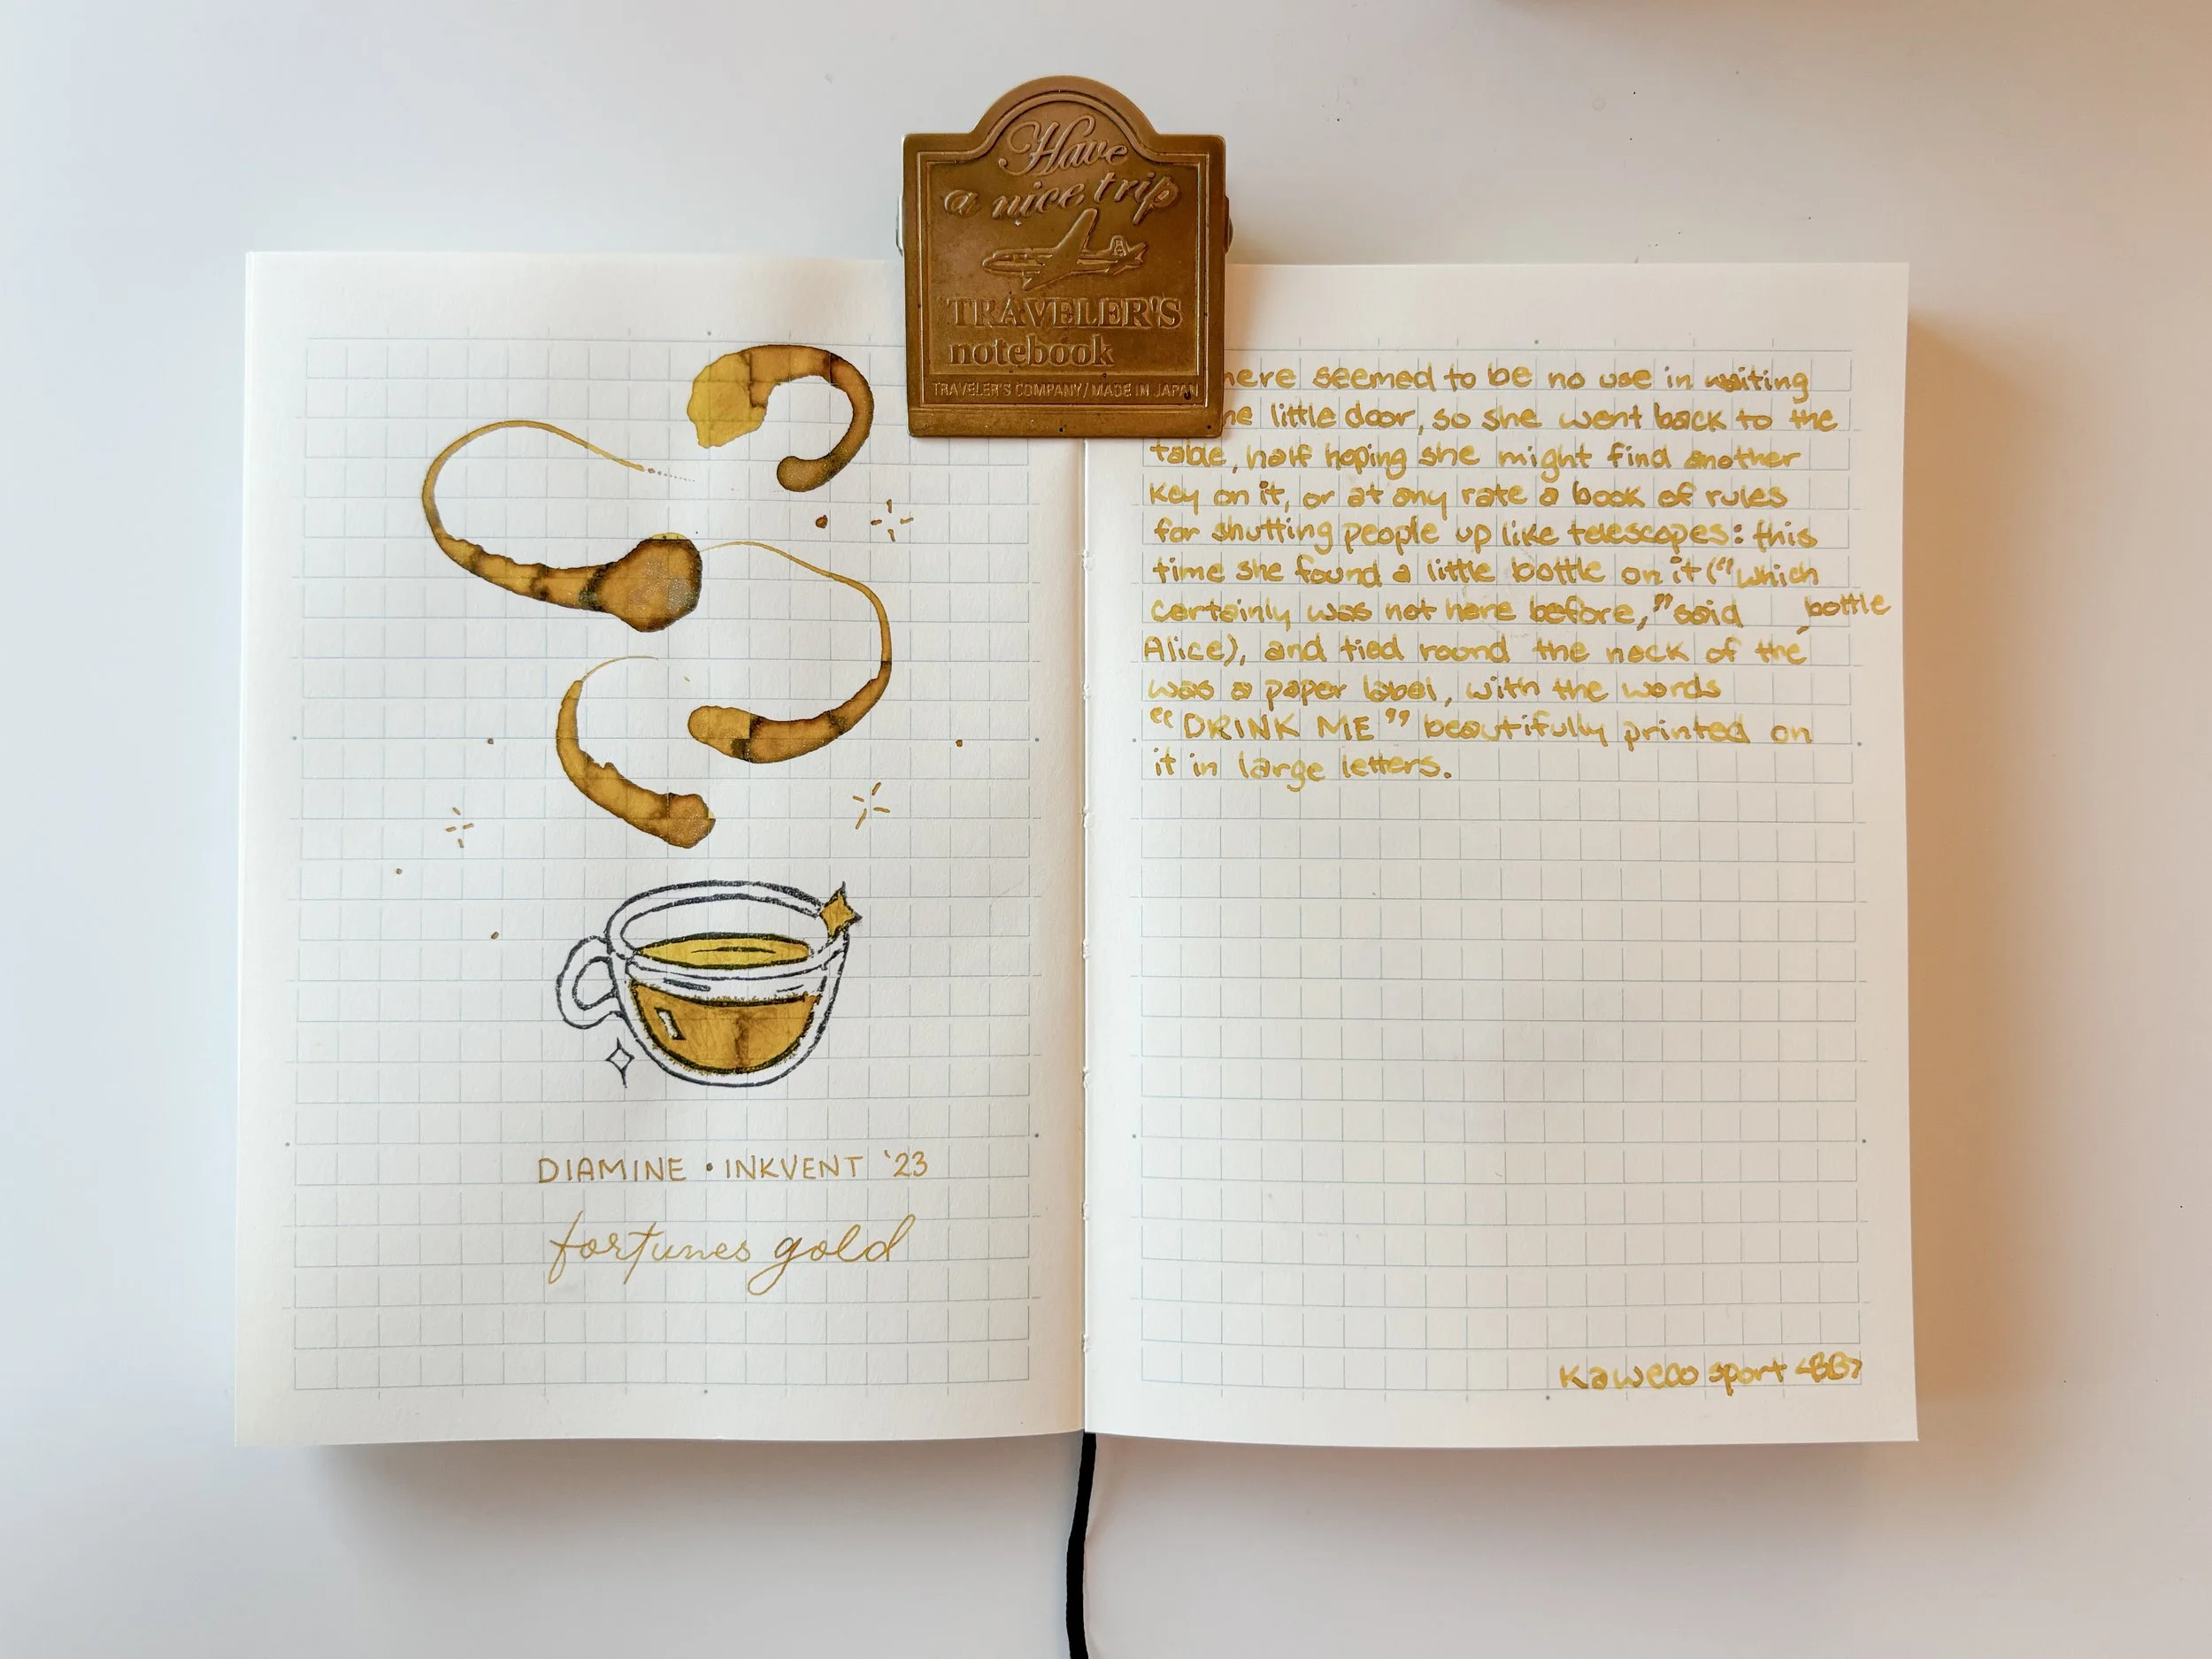 Have
a nice trip
TRAVELER'S
notebook
TRAVELER'S COMPANY/MADE IN JAPAN
DIAMINE • INKVENT '23
fortunes gold
here seemed to be no use in waiting
he little door, so she went back to the
table, half hoping she might find another
key on it, or at any rate a book of rules
for shutting people up like telescopes: this
time she found a little bottle on it ("which
certainly was not here before," said
Alice), and tied round the neck of the bottle
was a paper label, with the words
"DRINK ME" beautifully printed on
it in large letters.
Kaweco sport <BB>